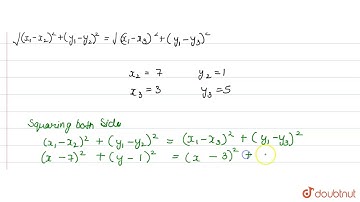 √(x₁-x₂)² + (y₁-y₂)² = √(x₁-x₃)² + (y₁-y₃)²
x₂ = 7 y₂ = 1
x₃ = 3 y₃ = 5
Squaring both Side
(x₁-x₂)² + (y₁-y₂)² = (x₁-x₃)² + (y₁-y₃)²
(x - 7)² + (y - 1)² = (x - 3)² +
doubtnut